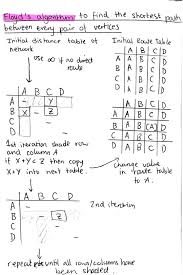 Floyd's algorithm to find the shortest path
between every pair of vertices
Initial distance table of network
use ∞ if no direct route
A B C D
A - Y
B X - Z
C
D
Initial Route Table
A B C D
A A B C D
B A B C D
C A B C D
D A B C D
1st iteration shade row
and column A
if X+Y < Z then copy
X+Y into next table.
A B C D
A A B C D
B A B C A
C A B C D
D A B C D
change value
in route table
to A.
A B C D
A -
B - Z
C
D
2nd iteration
repeat until all rows/columns have
been shaded.